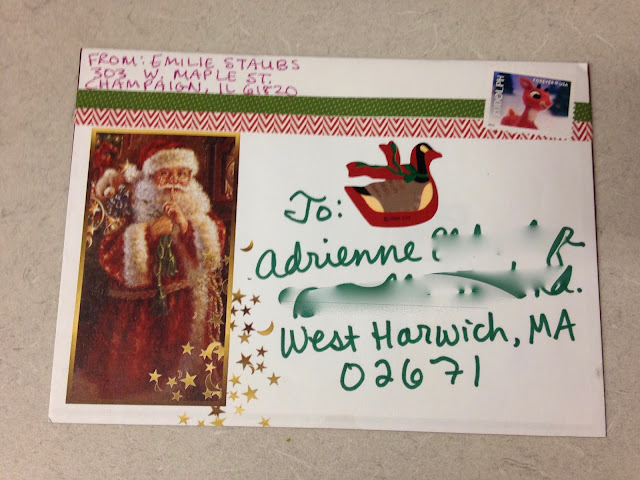 FROM: EMILIE STAUBS
303 W. MAPLE ST.
CHAMPAIGN, IL 61820
FOREVER USA
RUDOLPH
To:
Adrienne
Rd.
West Harwich, MA
02671